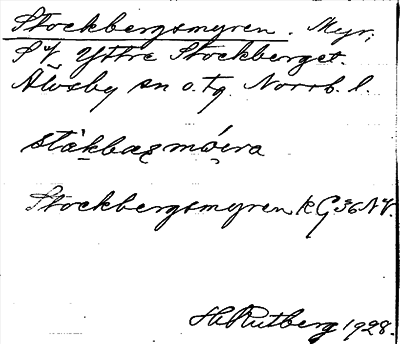 Stockbergsmyren. Myr,
S of Yttre Stockberget.
Älvsby sn o. tg. Norrb. l.
Stockbergsmyren RG 36 NV.
H. Rutberg 1928.